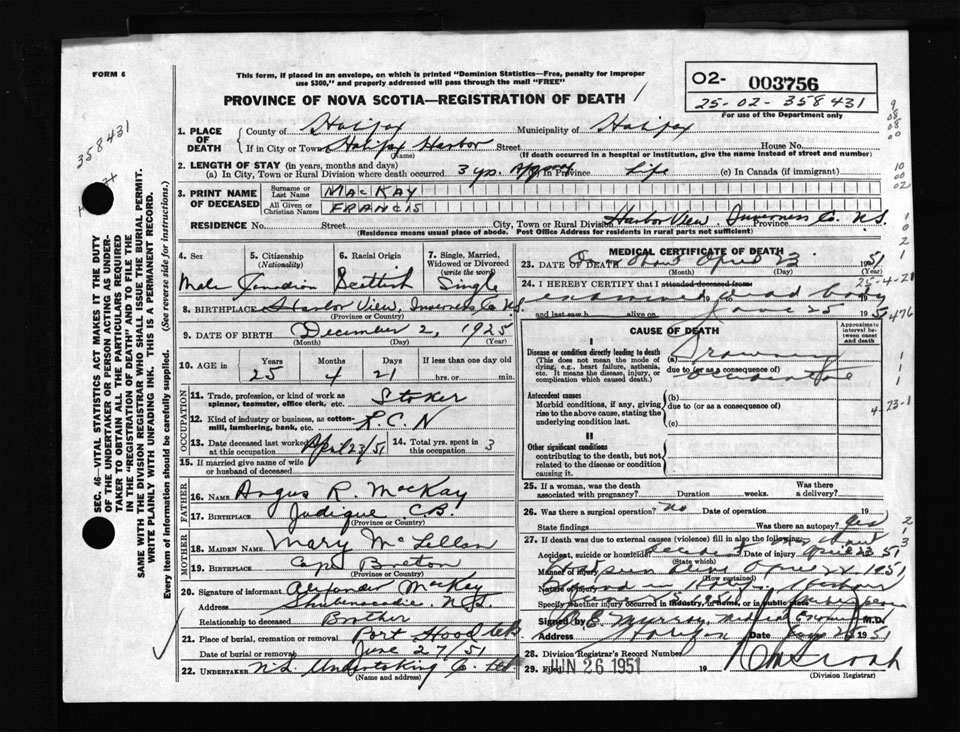 FORM 6
This form, if placed in an envelope, on which is printed "Dominion Statistics—Free, penalty for improper
use $300," and properly addressed will pass through the mail "FREE"
PROVINCE OF NOVA SCOTIA—REGISTRATION OF DEATH
02- 003756
25-02-358431
For use of the Department only
358431
SEC. 46—VITAL STATISTICS ACT MAKES IT THE DUTY
OF THE UNDERTAKER OR PERSON ACTING AS UNDER-
TAKER TO OBTAIN ALL THE PARTICULARS REQUIRED
IN THE "REGISTRATION OF DEATH" AND TO FILE THE
SAME WITH THE DIVISION REGISTRAR WHO SHALL ISSUE THE BURIAL PERMIT.
WRITE PLAINLY WITH UNFADING INK. THIS IS A PERMANENT RECORD.
Every item of information should be carefully supplied. (See reverse side for instructions.)
1. PLACE OF DEATH County of Halifax Municipality of Halifax
If in City or Town Halifax Harbor Street House No.
(Name) (If death occurred in a hospital or institution, give the name instead of street and number)
2. LENGTH OF STAY (in years, months and days)
(a) In City, Town or Rural Division where death occurred 3 yrs. in Province Life (c) In Canada (if immigrant)
3. PRINT NAME OF DECEASED Surname or Last Name MACKAY
All Given or Christian Names FRANCIS
RESIDENCE No. Street City, Town or Rural Division Harbor View, Inverness Co. Province N.S.
(Residence means usual place of abode. Post Office Address for residents in rural parts not sufficient)
4. Sex 5. Citizenship (Nationality) 6. Racial Origin 7. Single, Married, Widowed or Divorced (write the word)
Male Canadian Scottish Single
8. BIRTHPLACE Harbor View, Inverness Co N.S.
(Province or Country)
9. DATE OF BIRTH December 2, 1925
(Month) (Day) (Year)
10. AGE in Years Months Days If less than one day old
25 4 21 hrs. or min.
OCCUPATION
11. Trade, profession, or kind of work as spinner, teamster, office clerk, etc. Stoker
12. Kind of industry or business, as cotton-mill, lumbering, bank, etc. R.C.N
13. Date deceased last worked at this occupation April 23/51 14. Total yrs. spent in this occupation 3
15. If married give name of wife or husband of deceased
FATHER
16. NAME Angus R. MacKay
17. BIRTHPLACE Judique C.B.
(Province or Country)
MOTHER
18. MAIDEN NAME Mary McLellan
19. BIRTHPLACE Cape Breton
(Province or Country)
20. Signature of informant Alexander MacKay
Address Shubenacadie, N.S.
Relationship to deceased Brother
21. Place of burial, cremation or removal Port Hood
Date of burial or removal June 27/51
22. UNDERTAKER N.S. Undertaking Co. Ltd
(Name and address)
MEDICAL CERTIFICATE OF DEATH
23. DATE OF DEATH about April 23 1951
(Month) (Day) (Year)
25-4-21
24. I HEREBY CERTIFY that I attended deceased from
examined dead body 19 to 19
and last saw h alive on June 25 195
CAUSE OF DEATH
Approximate interval between onset and death
I
Disease or condition directly leading to death
(This does not mean the mode of dying, e.g., heart failure, asthenia, etc. It means the disease, injury, or complication which caused death.)
(a) Drowning
due to (or as a consequence of)
accidental
Antecedent causes
Morbid conditions, if any, giving rise to the above cause, stating the underlying condition last.
(b)
due to (or as a consequence of)
(c)
4-73-1
II
Other significant conditions
contributing to the death, but not related to the disease or condition causing it.
25. If a woman, was the death associated with pregnancy? Duration weeks. Was there a delivery?
26. Was there surgical operation? No Date of operation 19
State findings Was there an autopsy? Yes
27. If death was due to external causes (violence) fill in also the following:
Accident, suicide or homicide? Accident Date of injury about April 23 51
(State which)
Manner of injury April 22, 1951
(How sustained)
Nature of injury
Specify whether injury occurred in industry, in home, or in public place
Signed by Murray, Medical Examiner M.D.
Address Halifax Date 1951
28. Division Registrar's Record Number
29. Filed JUN 26 1951 19
(Division Registrar)